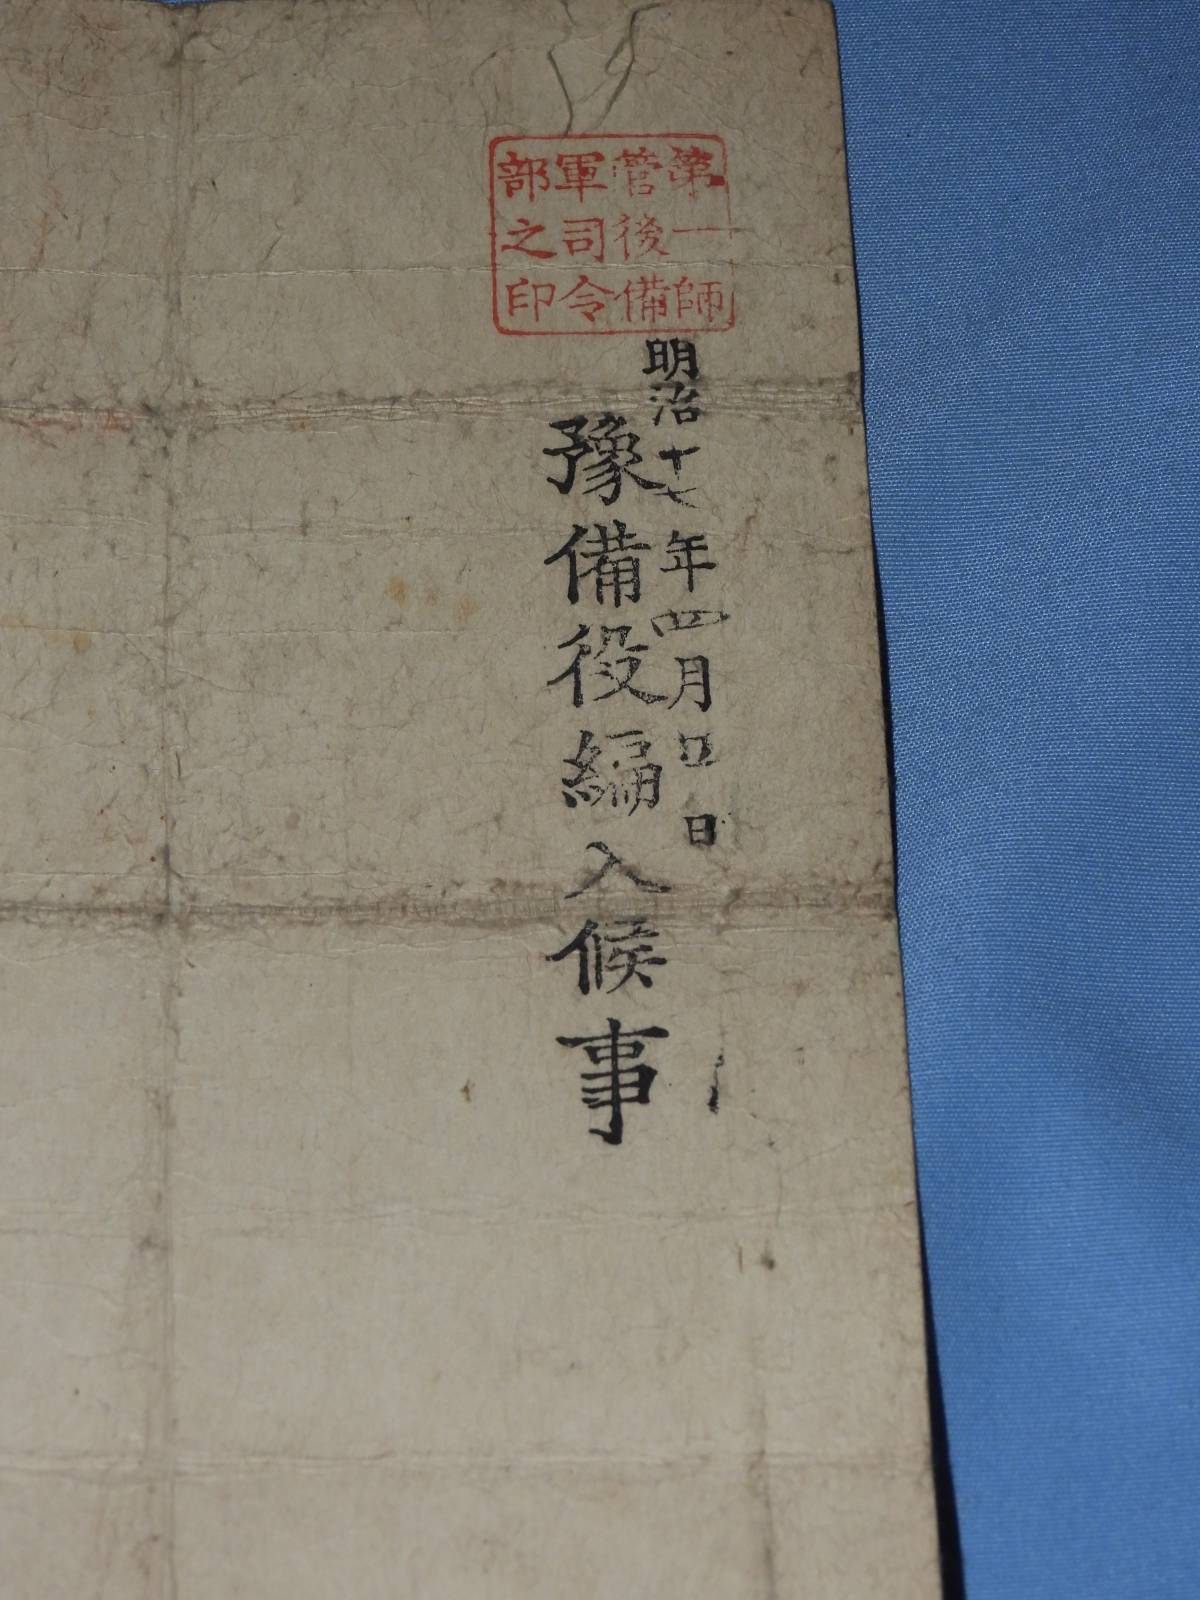 第一師
管後備
軍司令
部之印
明治十七年四月五日
豫備役編入候事